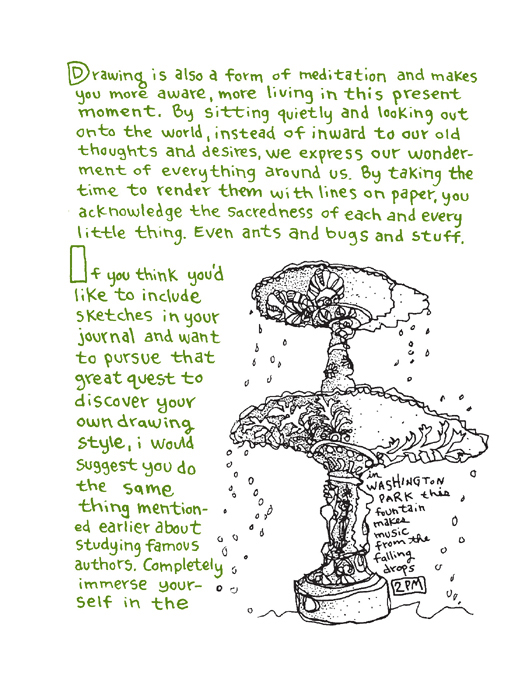 Drawing is also a form of meditation and makes
you more aware, more living in this present
moment. By sitting quietly and looking out
onto the world, instead of inward to our old
thoughts and desires, we express our wonder-
ment of everything around us. By taking the
time to render them with lines on paper, you
acknowledge the sacredness of each and every
little thing. Even ants and bugs and stuff.
If you think you'd
like to include
sketches in your
journal and want
to pursue that
great quest to
discover your
own drawing
style, i would
suggest you do
the same
thing mention-
ed earlier about
studying famous
authors. Completely
immerse your-
self in the
in
WASHINGTON
PARK this
fountain
makes
music
from the
falling
drops
2PM